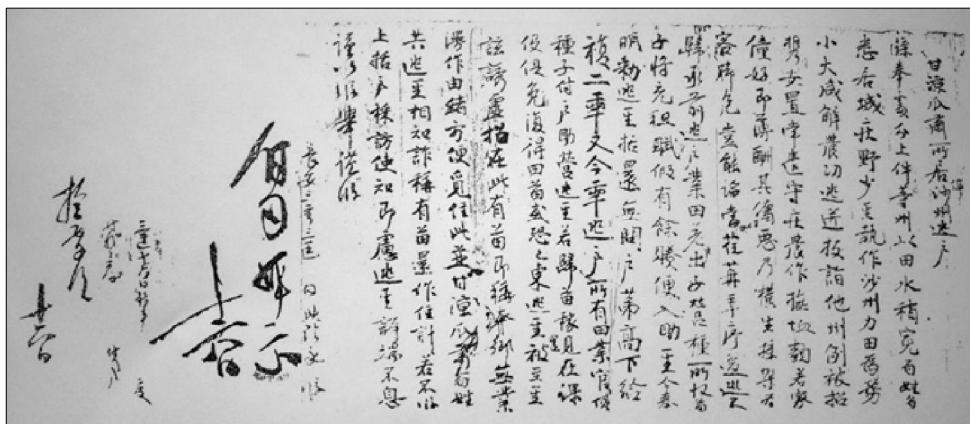 甘涼瓜肅所居停沙州逃戶
牒奉處分上件等州以田水稍寬百姓多
悉居城莊野少人執作沙州力田為務
小大咸解農功逃迸投詣他州例被招
攜安置常遣守莊農作撫恤類若家
僮好即薄酬其傭惡乃橫生構架為
客腳危豈能論當荏苒季序逡巡不
歸承前逃戶業田差戶出子營種所收苗
子將充租賦假有餘剩便入助人今奉
明敕逃人括還無問戶第高下給
復二年又今年逃戶所有田業官貸
種子付戶助營逃人若歸苗稼見在課
役俱免復得田苗或恐已東逃人被主人
詃誘虛招在此有苗即稱本鄉無業
漫作由緒方便覓住此並甘涼瓜肅百姓
共逃人相知詐稱有苗還作住計若不牒
上括戶採訪使知即慮逃人訴端不息
謹以牒舉謹牒
長安三年三月 日典陰永牒
付司辯示
十六日
三月十六日錄事 受
檢案
十六日